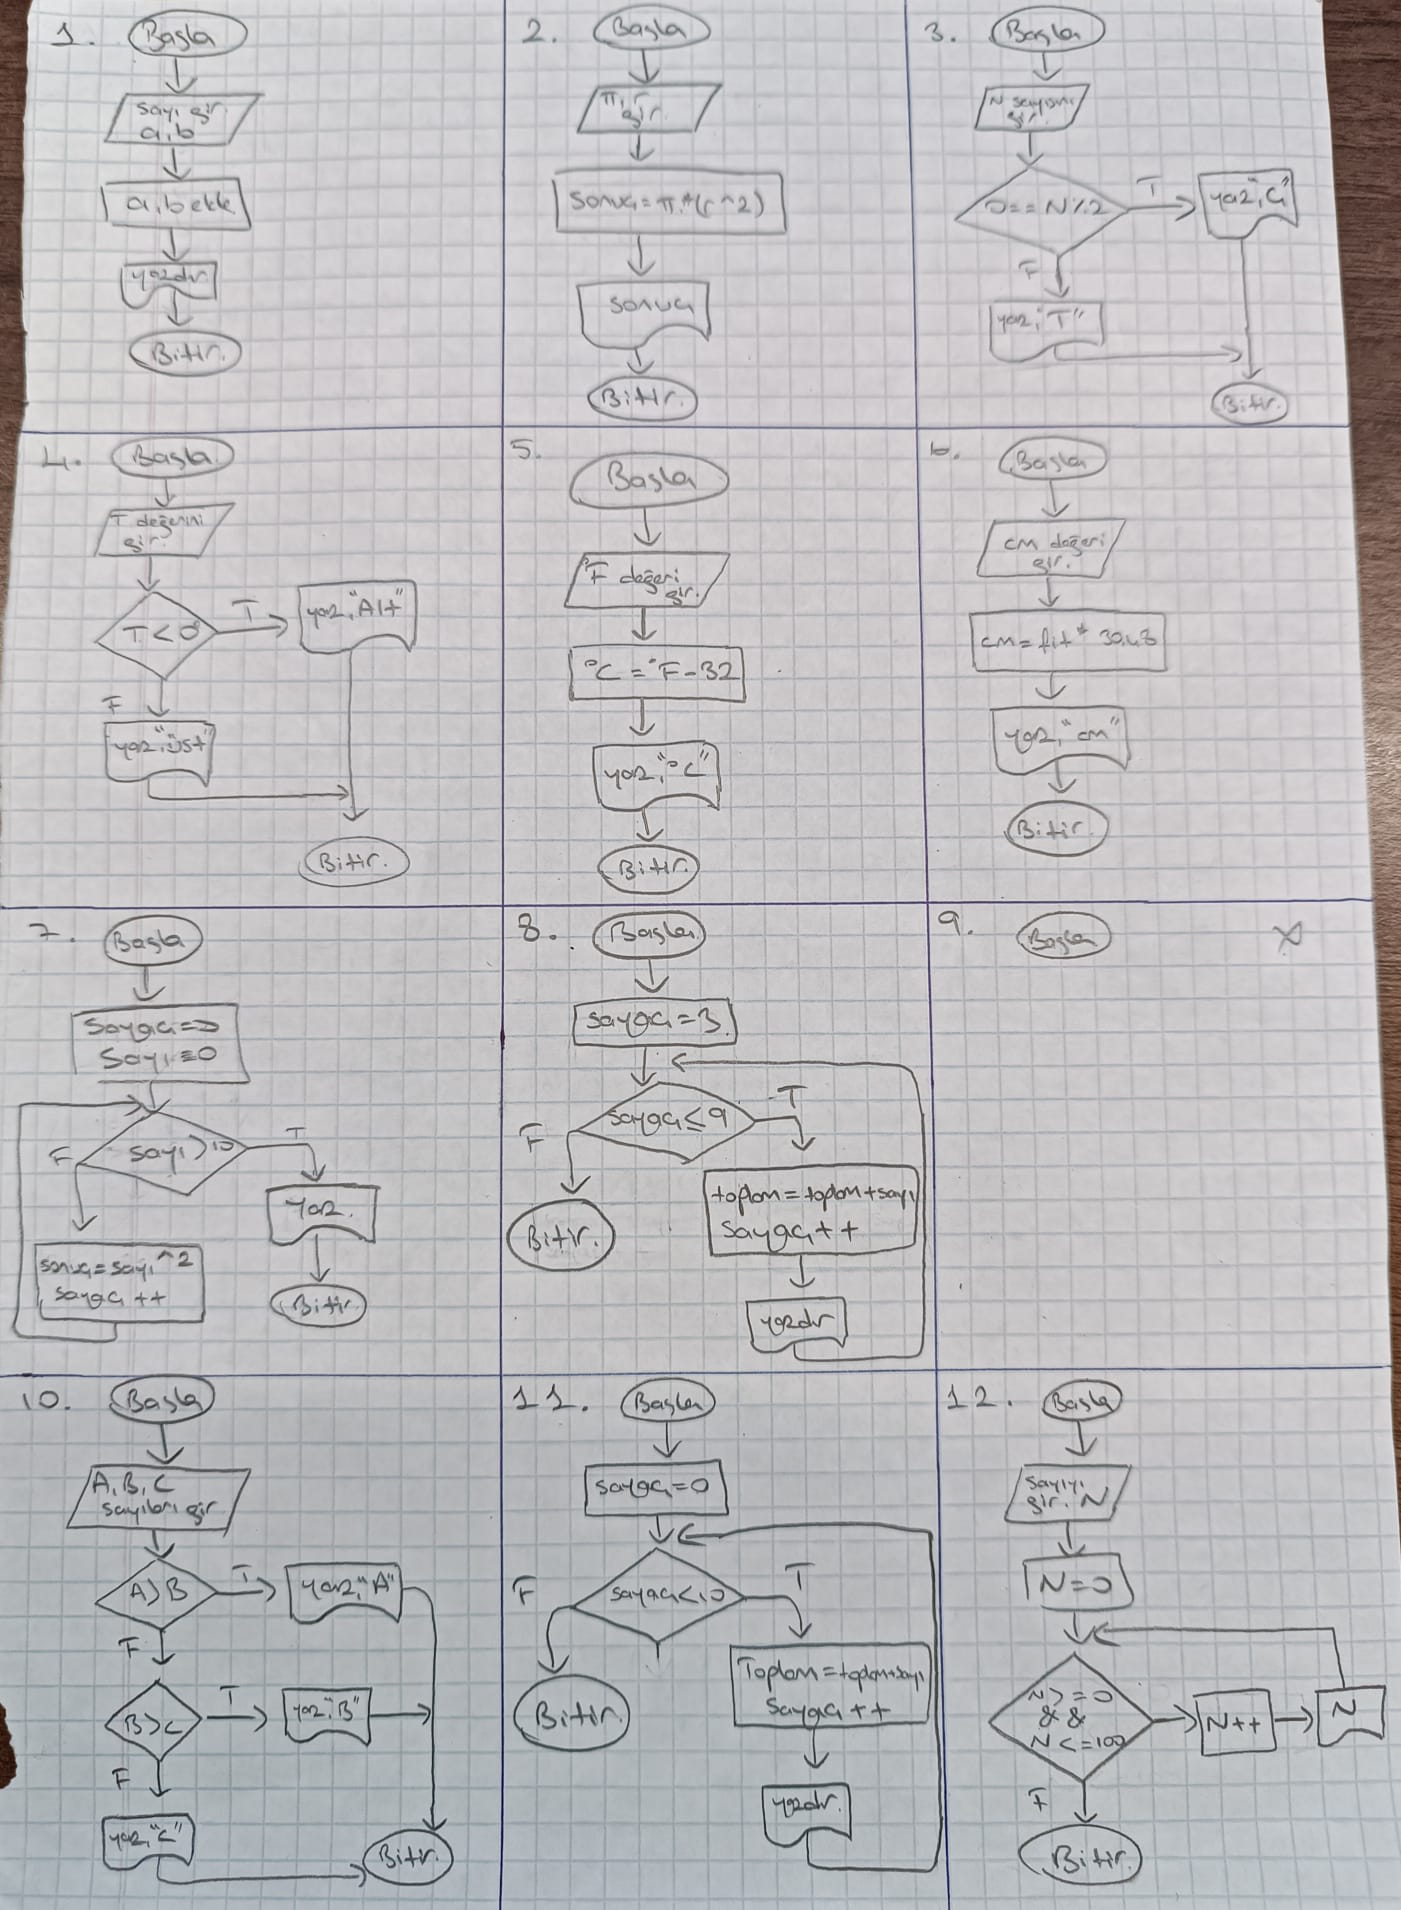 1.
Başla
sayı gir
a,b
a,b ekle
yazdır
Bitir.
2.
Başla
π, r
gir.
Sonuç=π*(r^2)
sonuç
Bitir.
3.
Başla
N sayısını
gir.
0==N%2
T
yaz,"Ç"
F
yaz,"T"
Bitir.
4.
Başla
T değerini
gir.
T<0
T
yaz,"Alt"
F
yaz,"üst"
Bitir.
5.
Başla
°F değeri
gir.
°C=°F-32
yaz,"°C"
Bitir.
6.
Başla
cm değeri
gir.
cm=fit*30.48
yaz,"cm"
Bitir.
7.
Başla
Sayaç=0
Sayı=0
sayı>10
F
T
yaz.
sonuç=sayı^2
sayaç++
Bitir
8.
Başla
sayaç=3
sayaç≤9
T
F
Bitir.
toplam=toplam+sayı
sayaç++
yazdır
9.
Başla
x
10.
Başla
A,B,C
sayıları gir
A>B
T
yaz,"A"
F
B>C
T
yaz,"B"
F
yaz,"C"
Bitir.
11.
Başla
sayaç=0
sayaç<10
F
T
Toplam=toplam+sayı
Sayaç++
Bitir.
yazdır.
12.
Başla
sayıyı
gir. N
N=0
N>=0
&&
N<=100
N++
N
F
Bitir.